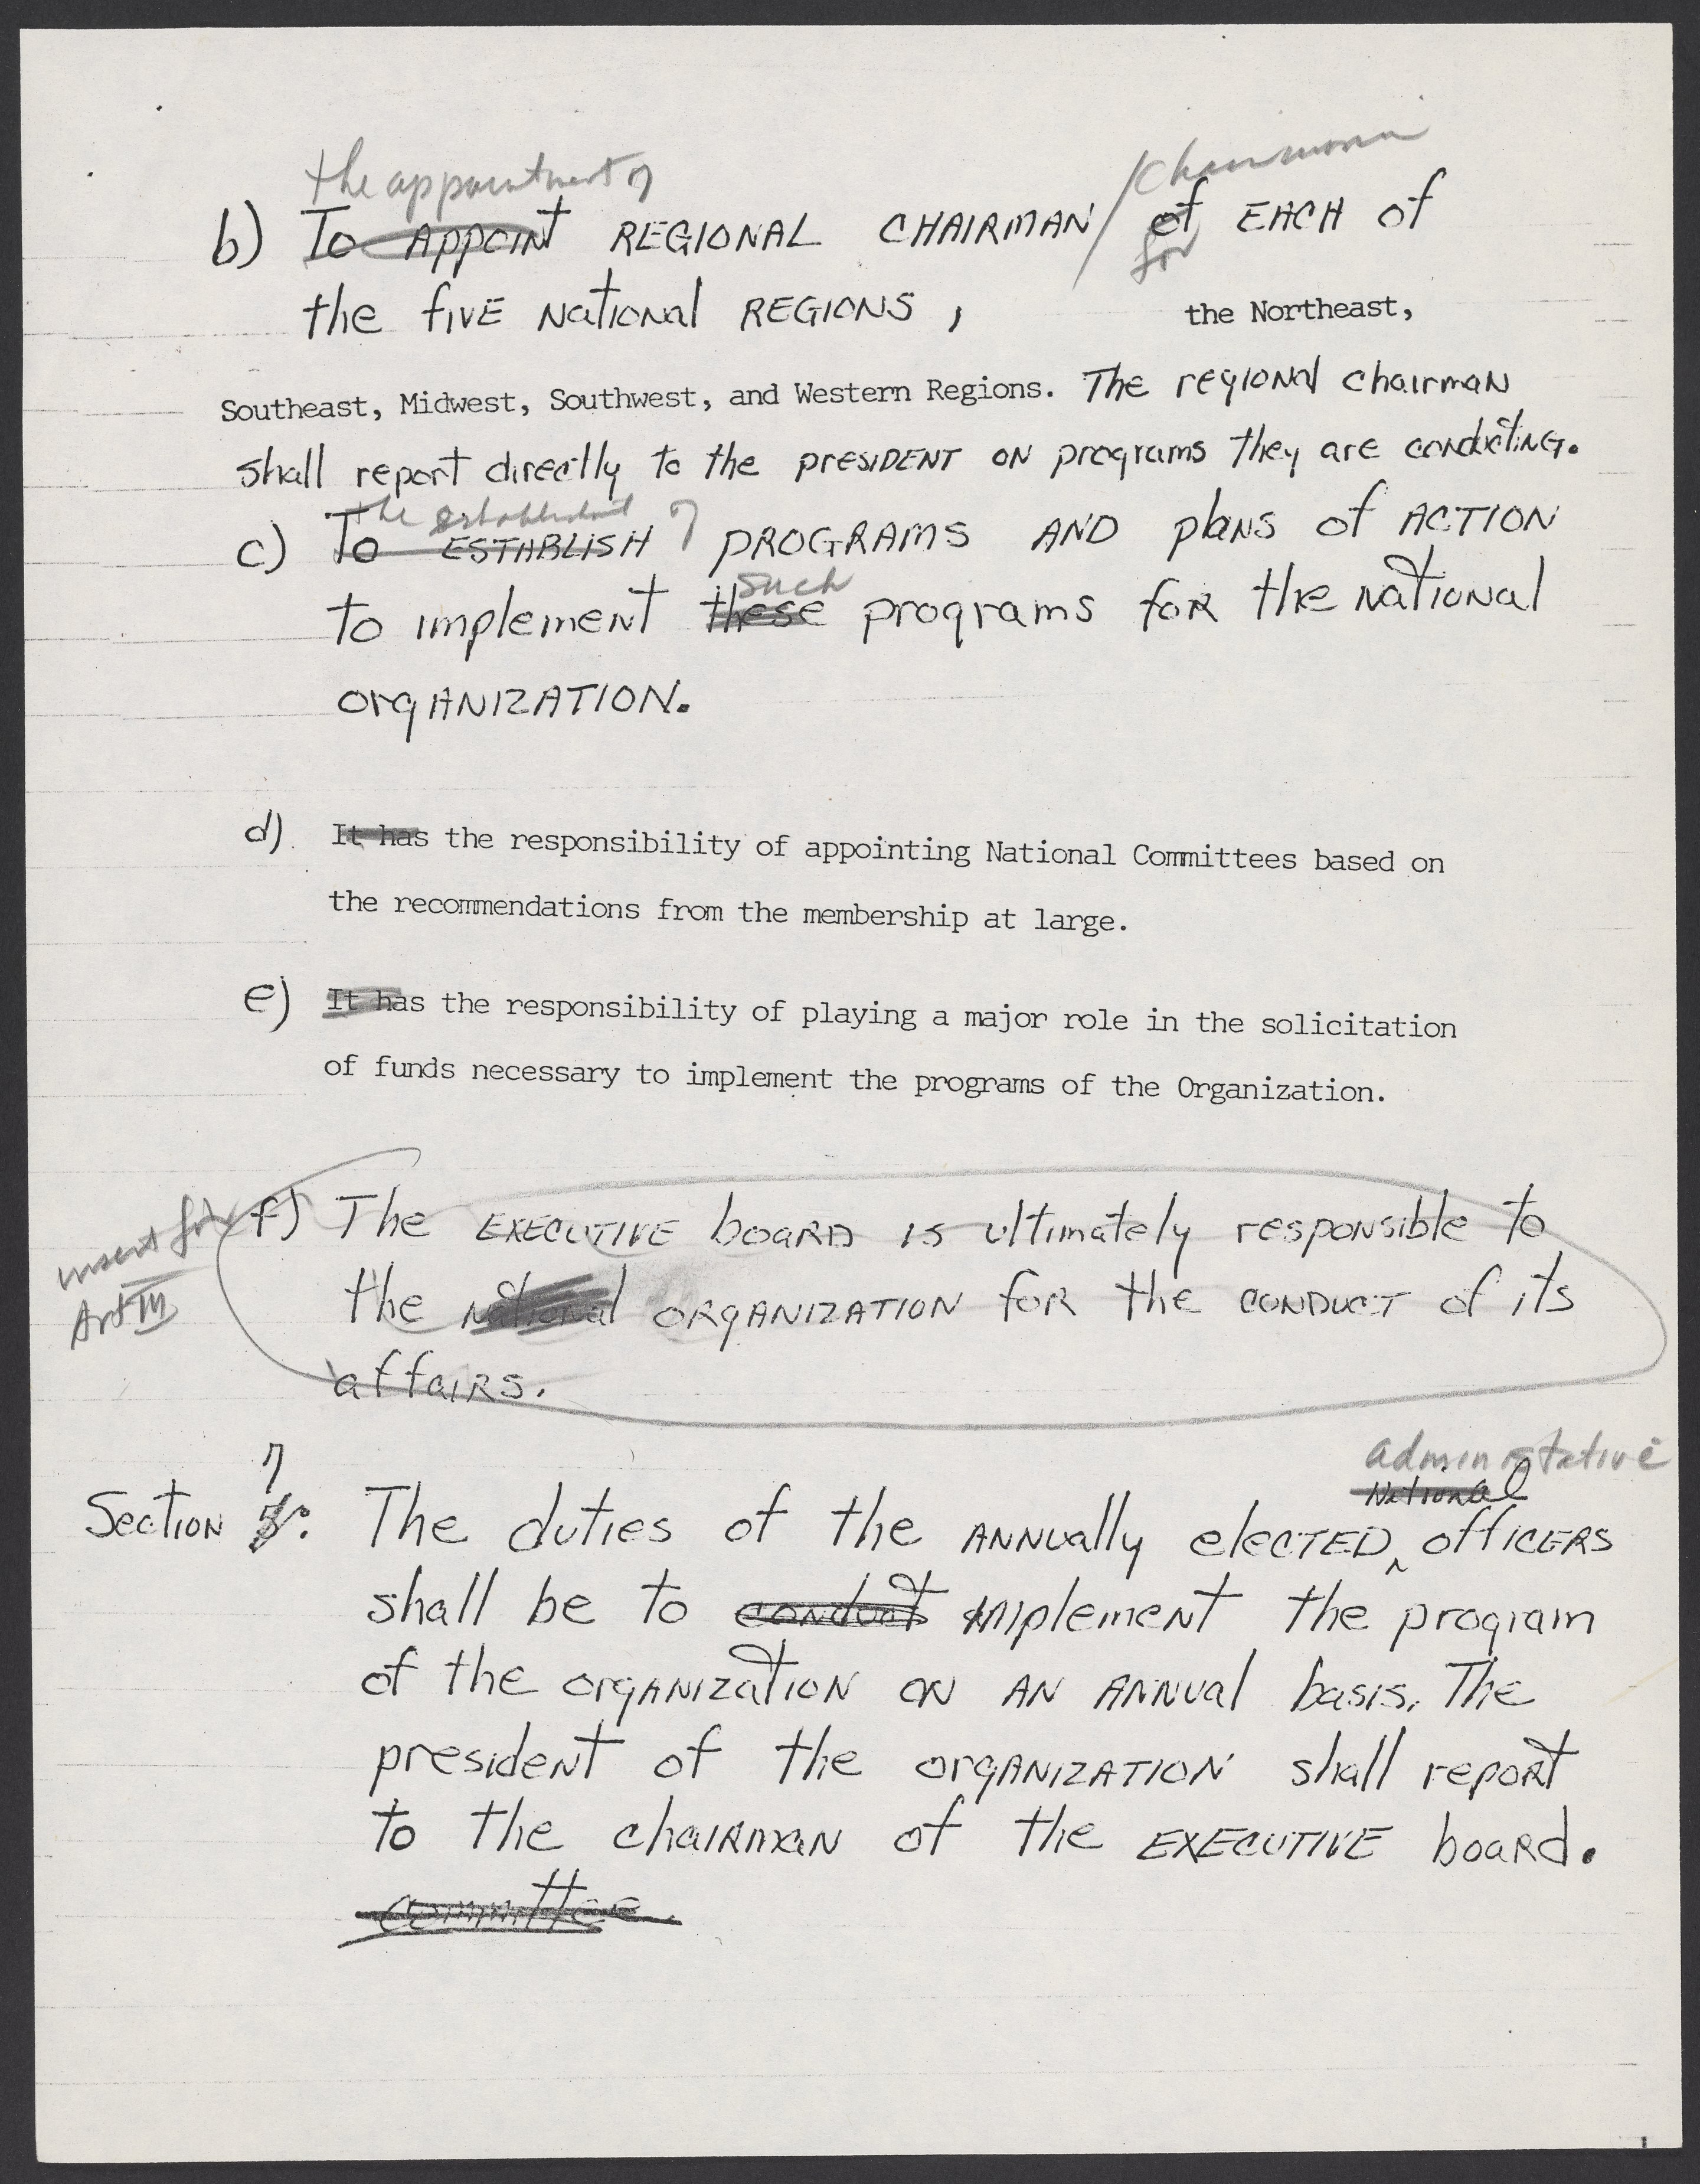 the appointment of /Chairmen
b) To APPOINT REGIONAL CHAIRMAN/ of EACH of
for
the fIVE National REGIONS, the Northeast,
Southeast, Midwest, Southwest, and Western Regions. The regional chairman
shall report directly to the PRESIDENT ON programs they are conducting.
the establishment of
c) To ESTABLISH PROGRAMS AND plans of ACTION
such
to implement these programs for the national
organization.
d) It has the responsibility of appointing National Committees based on
the recommendations from the membership at large.
e) It has the responsibility of playing a major role in the solicitation
of funds necessary to implement the programs of the Organization.
insert for
Art III
f) The EXECUTIVE board is ultimately responsible to
the National ORGANIZATION for the CONDUCT of its
affairs.
administative
7 National
Section : The duties of the ANNUally elected ^ officers
shall be to conduct implement the program
of the organization on AN ANNUal basis. The
president of the organization shall report
to the chairman of the EXECUTIVE board.
committee